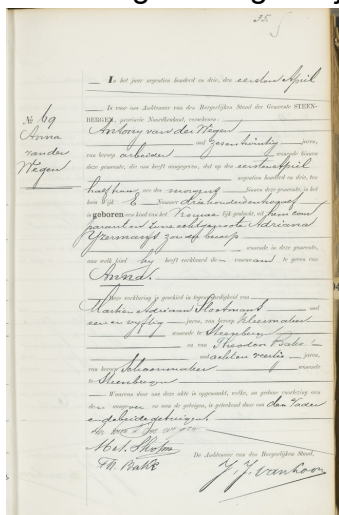 35.
In het jaar negentien honderd en drie, den eersten April
is voor ons Ambtenaar van den Burgerlijken Stand der Gemeente STEEN-
BERGEN, provincie Noordbrabant, verschenen:
Antony van der Wegen
oud zes en twintig jaren,
van beroep arbeider wonende binnen
deze gemeente, die ons heeft aangegeven, dat op den eersten April
negentien honderd en drie, des
half ure des morgens binnen deze gemeente, in het
huis Wijk E Nummer
is geboren een kind van het Vrouwelijk geslacht, uit hem comparant en zijne echtgenoote Adriana
IJzermans zonder beroep
wonende in deze gemeente,
aan welk kind hij heeft verklaard de voornaam te geven van
Anna.
№ 69
Anna
van der
Wegen
Deze verklaring is geschied in tegenwoordigheid van
Martien Adriaan Slootmans oud
een en vijftig jaren, van beroep kleermaker
wonende te Steenbergen
en van Theodor Bakx
oud acht en veertig jaren,
van beroep Schoenmaker wonende
te Steenbergen
Waarvan door ons deze akte is opgemaakt, welke, na gedane voorlezing aan
den aangever en aan de getuigen, is geteekend door ons den Vader
en beide getuigen
De Ambtenaar van den Burgerlijken Stand,
Th. Bakx
J. J. van Loon